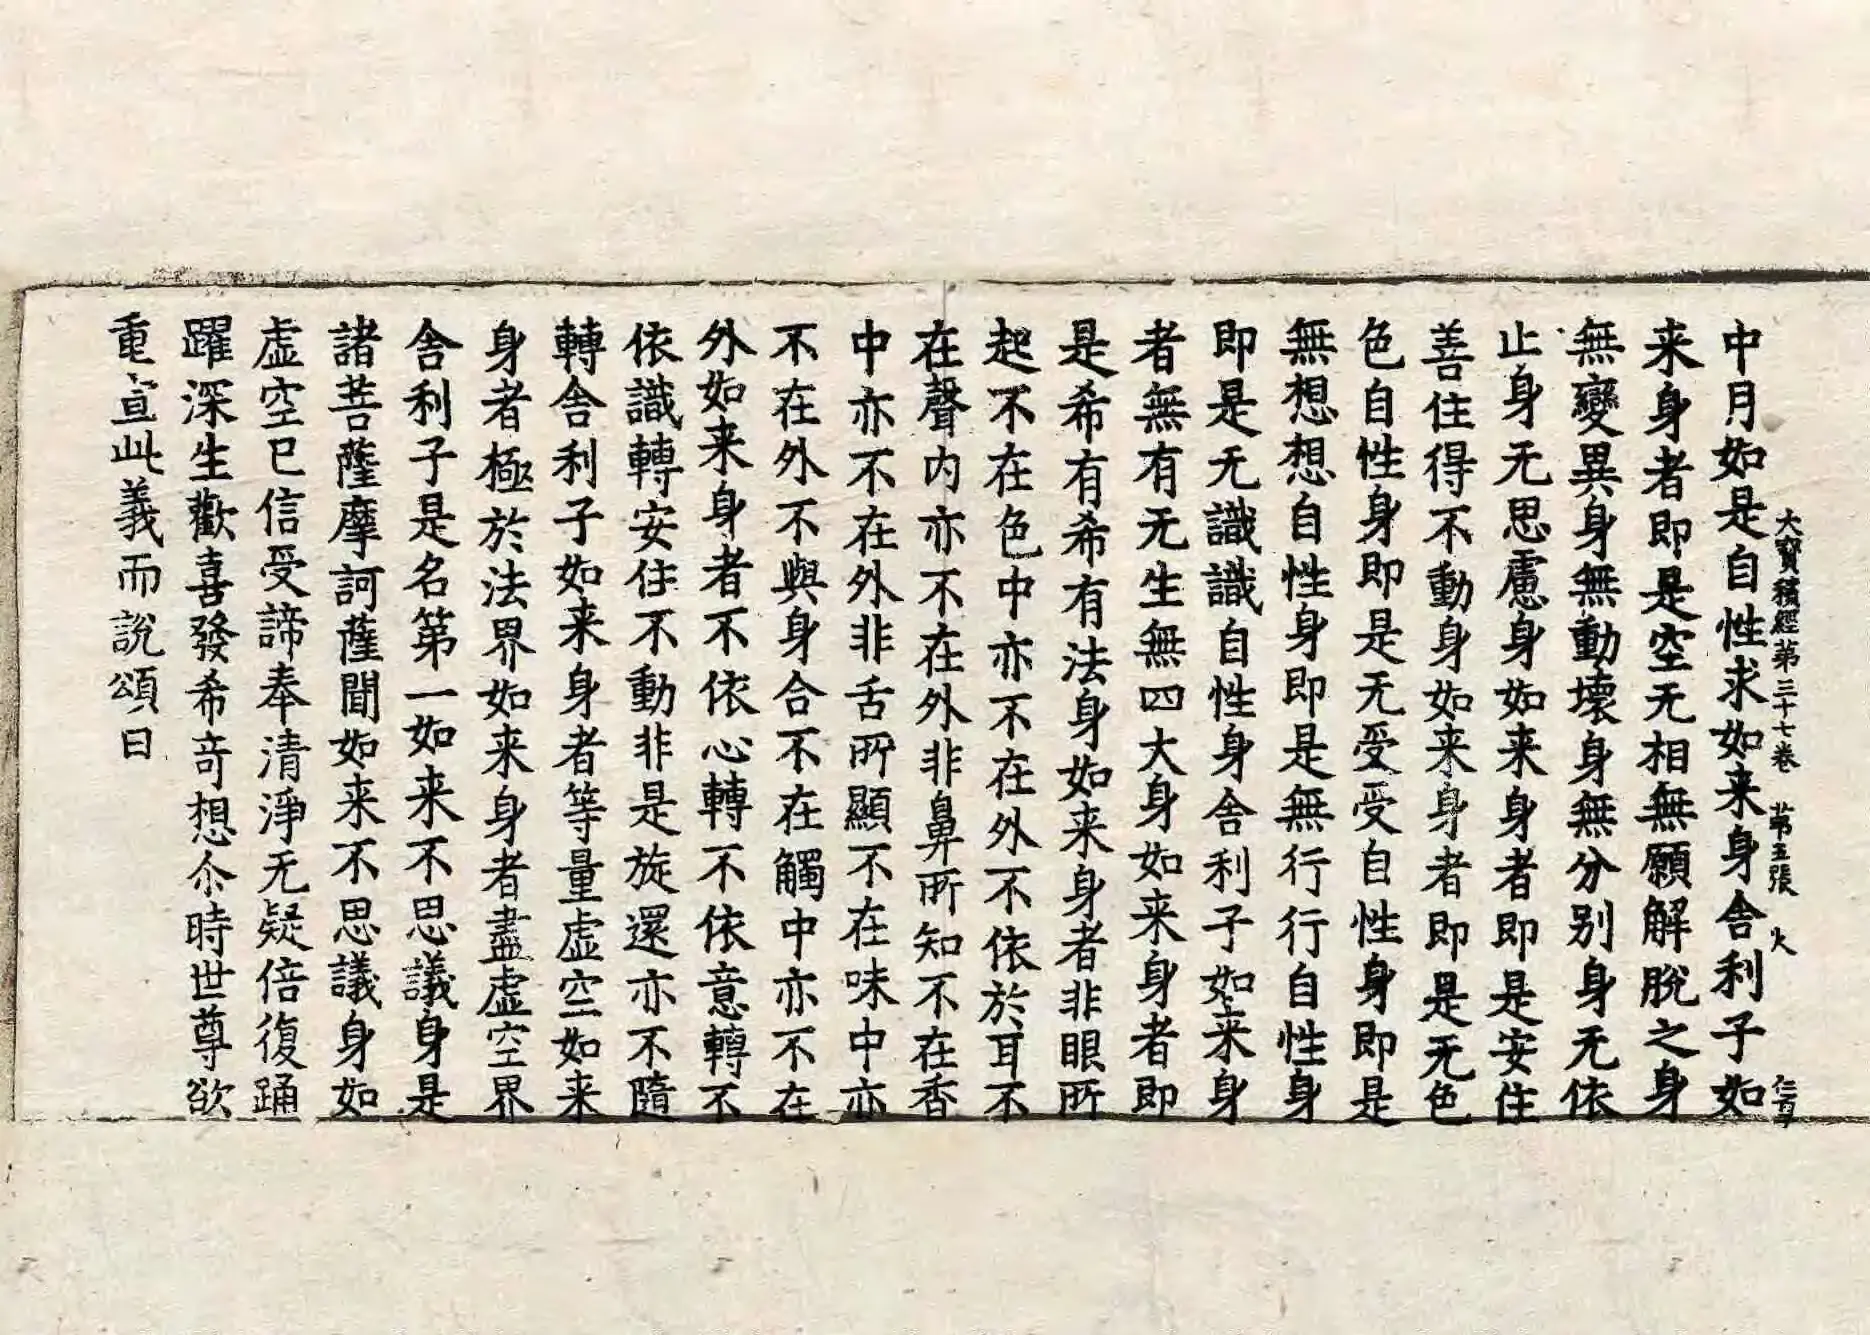 大寳積經第三十七卷　苐五張　火
中月如是自性求如来身舍利子如
来身者即是空无相無願解脫之身
無變異身無動壞身無分别身无依
止身无思慮身如来身者即是安住
善住得不動身如来身者即是无色
色自性身即是无受受自性身即是
無想想自性身即是無行行自性身
即是无識識自性身舍利子如来身
者無有无生無四大身如来身者即
是希有希有法身如来身者非眼所
起不在色中亦不在外不依於耳不
在聲内亦不在外非鼻所知不在香
中亦不在外非舌所顯不在味中亦
不在外不與身合不在觸中亦不在
外如来身者不依心轉不依意轉不
依識轉安住不動非是旋還亦不隨
轉舍利子如来身者等量虚空如来
身者極於法界如来身者盡虚空界
舍利子是名第一如来不思議身是
諸菩薩摩訶薩聞如来不思議身如
虚空已信受諦奉清淨无疑倍復踊
躍深生歡喜發希竒想尒時世尊欲
重宣此義而說頌曰